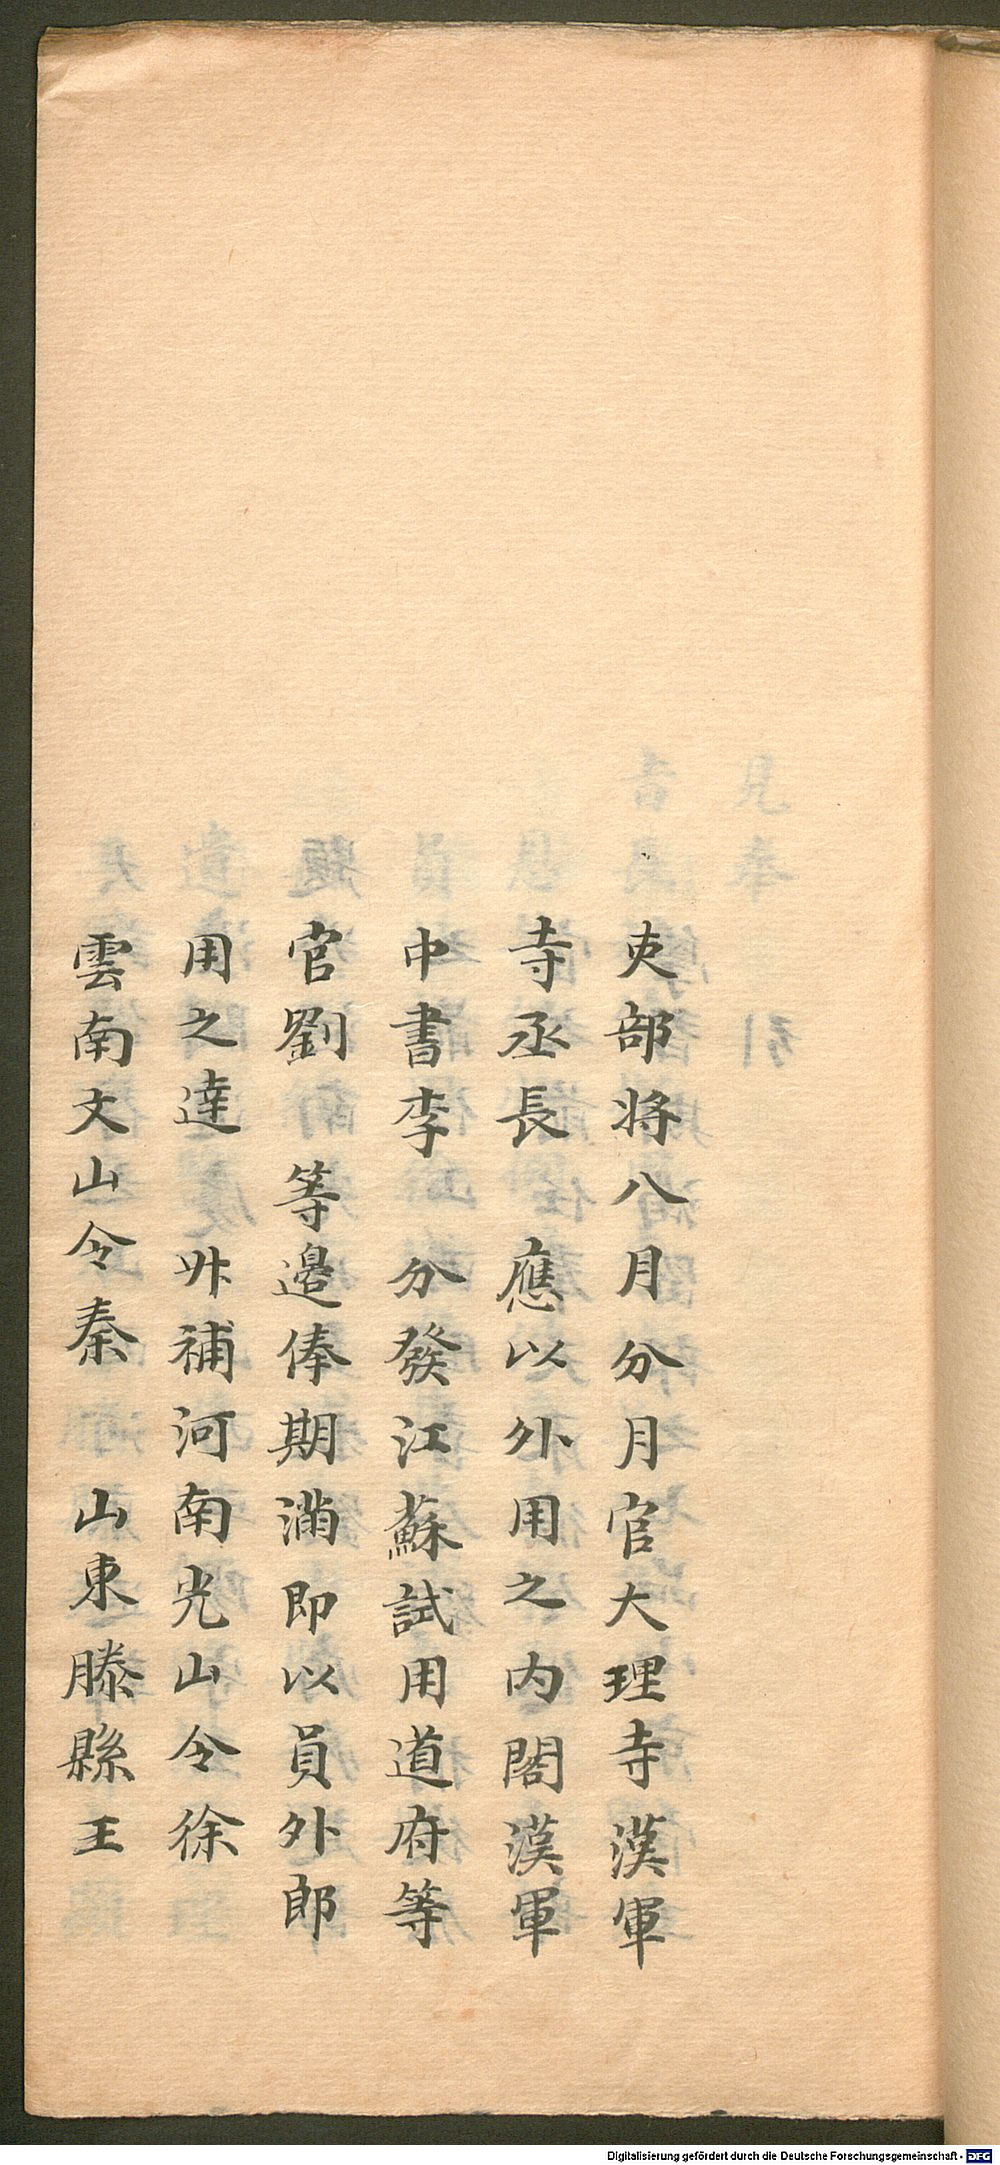 吏部將八月分月官大理寺漢軍
寺丞長　應以外用之內閣漢軍
中書李　分發江蘇試用道府等
官劉　等邊俸期滿即以員外郎
用之達　陞補河南光山令徐
雲南文山令秦　山東滕縣王
Digitalisierung gefördert durch die Deutsche Forschungsgemeinschaft - DFG